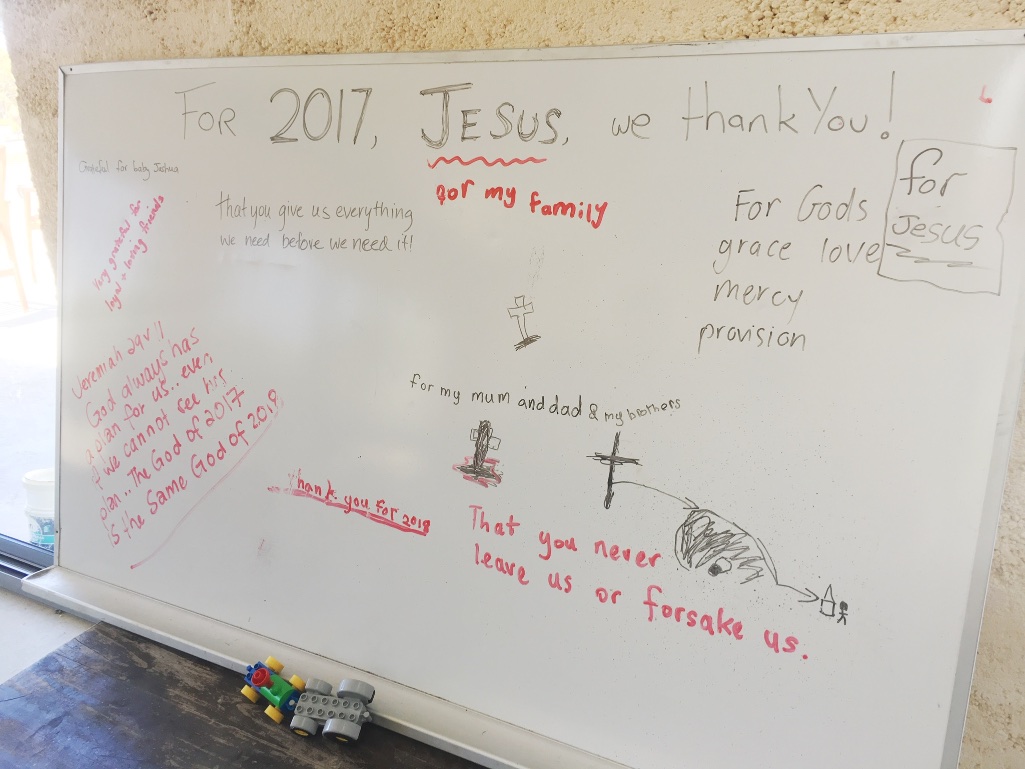 For 2017, JESUS, we thank You!
Grateful for baby Jeshua
Very grateful for
loyal + loving friends
that you give us everything
we need before we need it!
for my family
For Gods
grace love
mercy
provision
for
Jesus
for my mum and dad & my brothers
Jeremiah 29v11
God always has
a plan for us.. even
if we cannot see his
plan.. The God of 2017
is the Same God of 2018
thank you for 2018
That you never
leave us or forsake us.